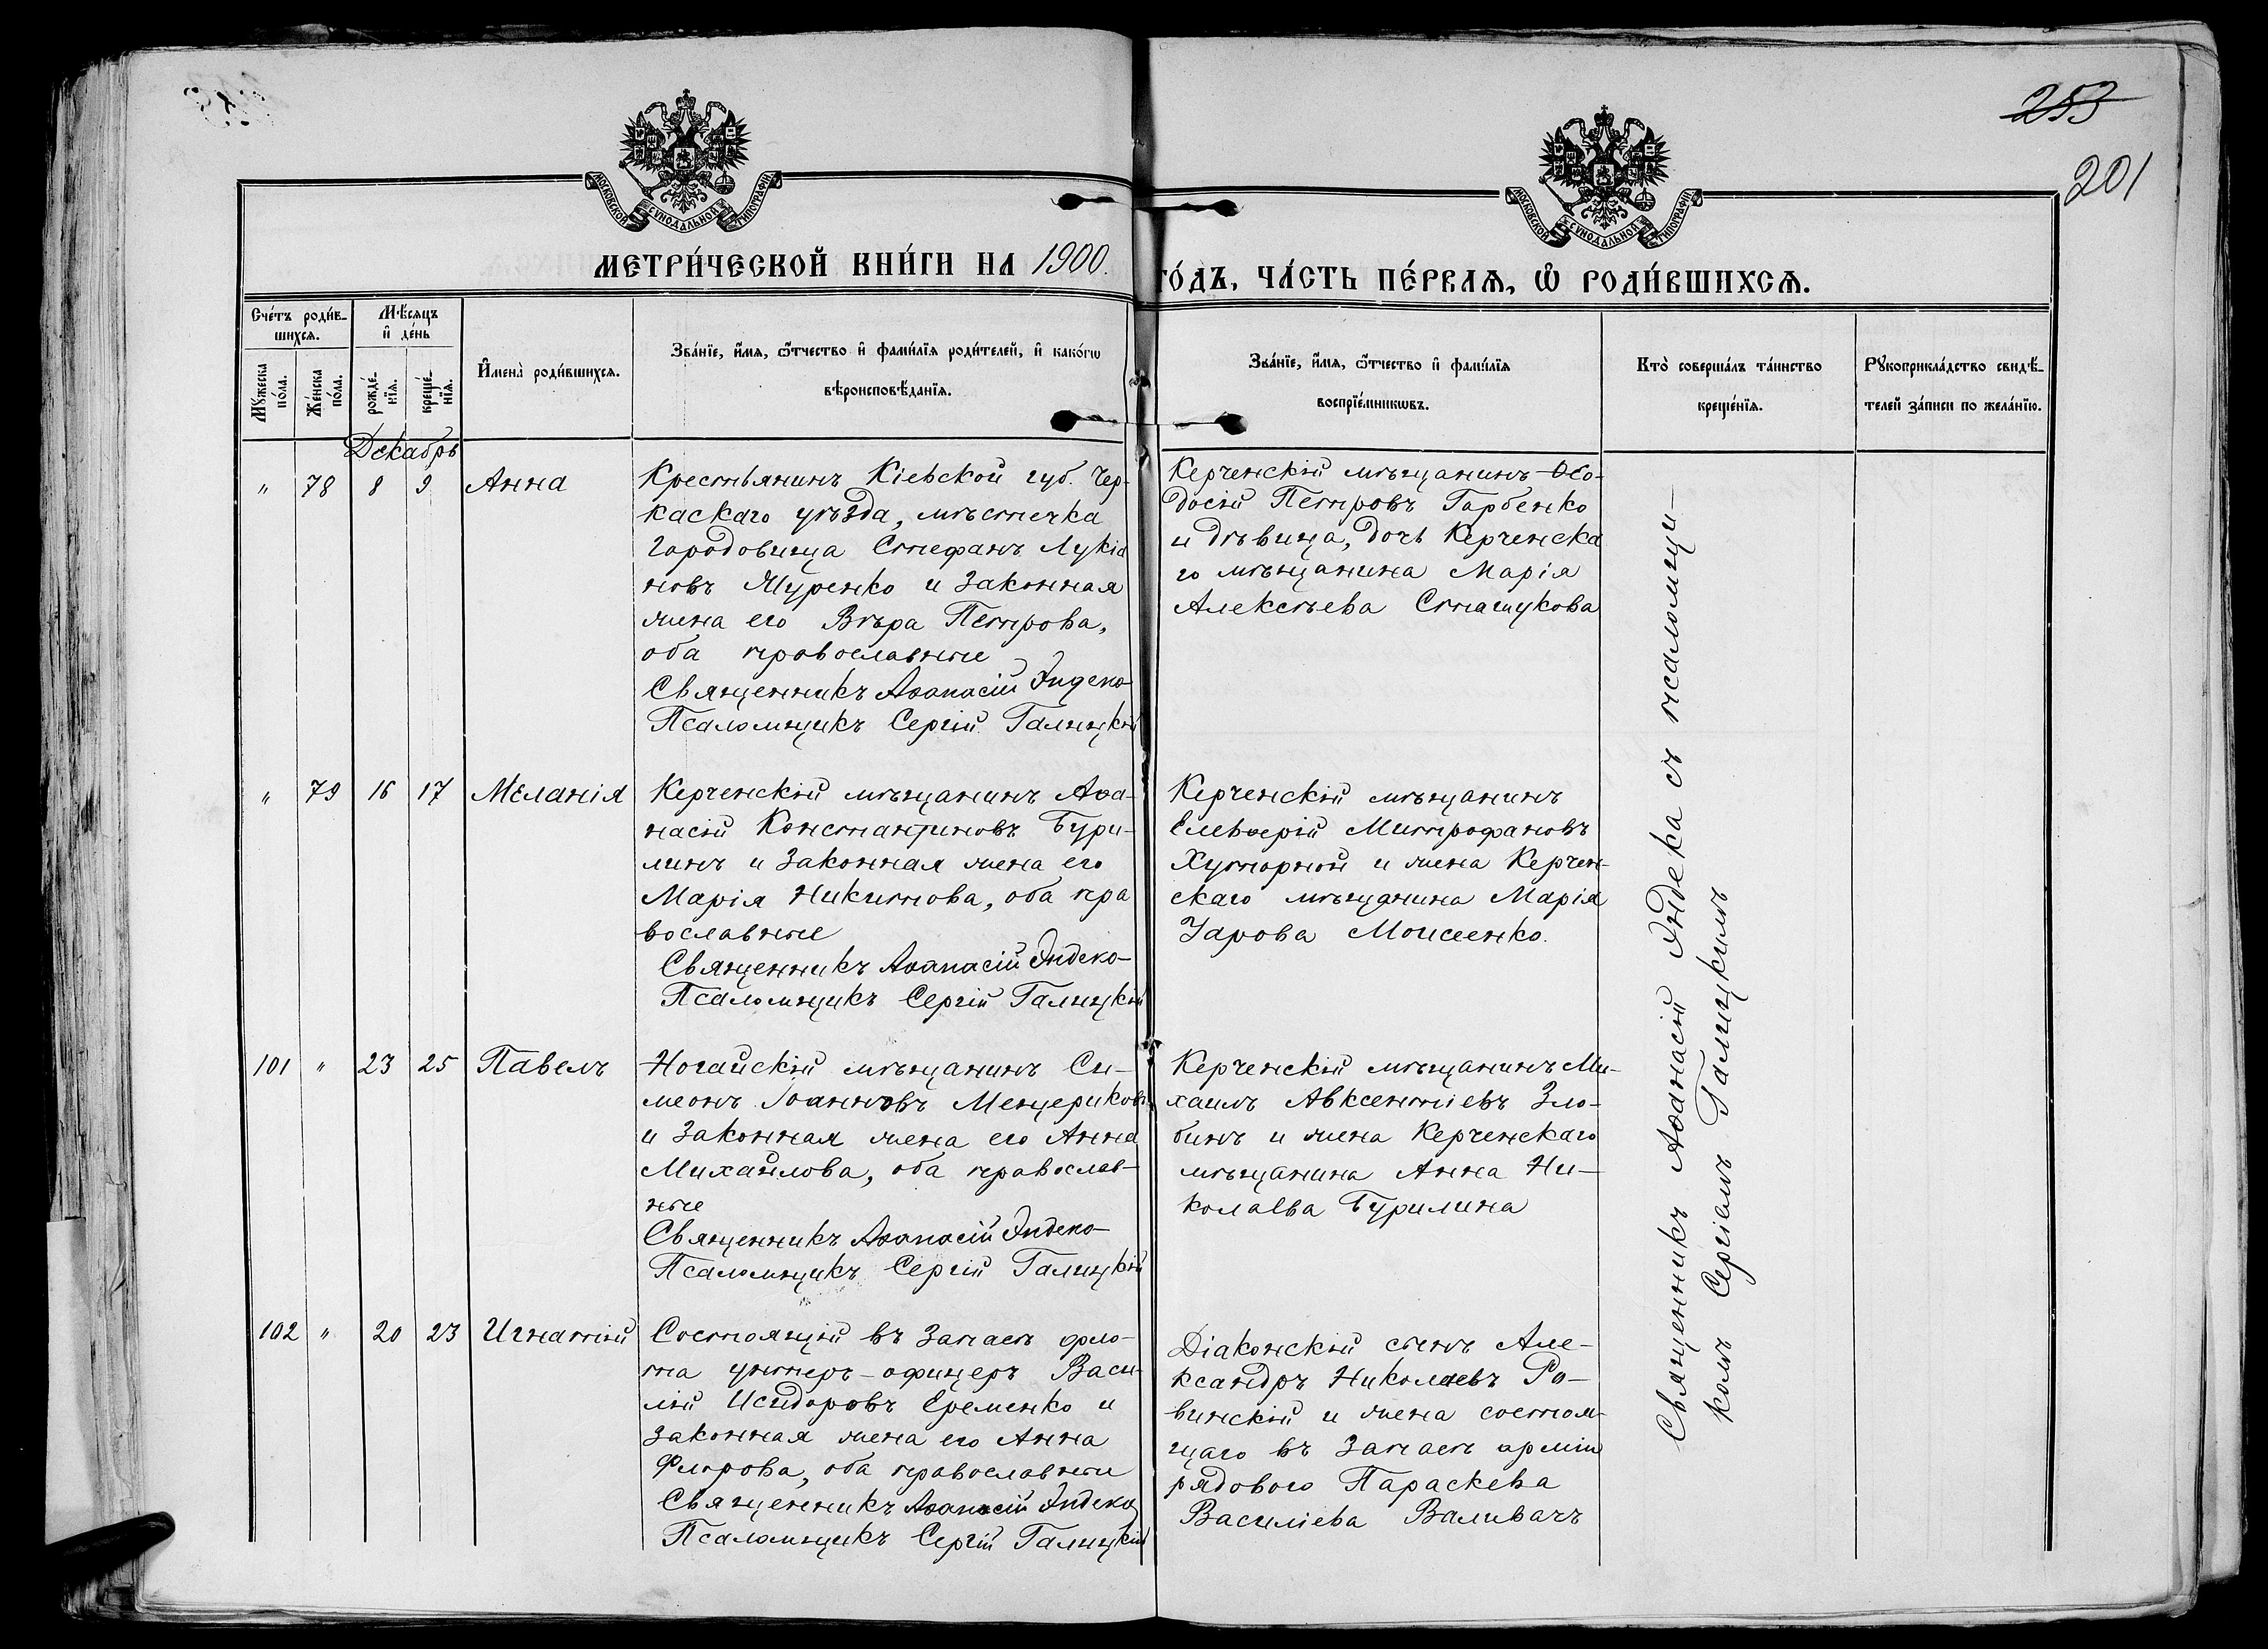 253
201
МОСКОВСКОЙ СУНОДАЛЬНОЙ ТИПОГРАФІИ
МОСКОВСКОЙ СУНОДАЛЬНОЙ ТИПОГРАФІИ
МЕТРИ́ЧЕСКОЙ КНИ́ГИ НА 1900.
ГО́ДЪ, ЧА́СТЬ ПЕ́РВАѦ, Ѡ҆ РОДИ́ВШИХСѦ.
Сче́тъ роди́в-
шихсѧ.
Мꙋ́жеска
по́ла.
Же́нска
по́ла.
Мѣ́сѧцъ
и҆ де́нь
рожде́-
нїѧ.
креще́-
нїѧ.
И҆мена̀ роди́вшихсѧ.
Зва́нїе, и҆́мѧ, ѻ҆́тчество и҆ фами́лїѧ роди́телей, и҆ како́гѡ
вѣроисповѣ́данїѧ.
Зва́нїе, и҆́мѧ, ѻ҆́тчество и҆ фами́лїѧ
воспрїе́мникѡвъ.
Кто̀ соверша́лъ та́инство
креще́нїѧ.
Рꙋкоприкла́дство свидѣ́-
телей за́писи по жела́нїю.
Декабрь
" 78 8 9 Анна
Крестьянинъ Кіевской губ. Чер-
каскаго уѣзда, мѣстечка
Городовища Стефанъ Лукіа
новъ Муренко и законная
жена его Вѣра Петрова,
оба православные
Священникъ Аѳанасій Индеко
Псаломщикъ Сергій Галицкій
Керченскій мѣщанинъ Ѳео-
досій Петровъ Гарбенко
и дѣвица, дочь Керченска
го мѣщанина Марія
Алексѣева Сташукова
" 79 16 17 Меланія
Керченскій мѣщанинъ Аѳа-
насій Константиновъ Бури-
линъ и законная жена его
Марія Никитова, оба пра
вославные
Священникъ Аѳанасій Индеко
Псаломщикъ Сергій Галицкій
Керченскій мѣщанинъ
Елевѳерій Митрофановъ
Хуторной и жена Керчен-
скаго мѣщанина Марія
Уарова Моисеенко.
101 " 23 25 Павелъ
Ногайскій мѣщанинъ Си-
меонъ Іоанновъ Мещериковъ
и законная жена его Анна
Михайлова, оба православ-
ные
Священникъ Аѳанасій Индеко
Псаломщикъ Сергій Галицкій
Керченскій мѣщанинъ Ми-
хаилъ Авксентіевъ Зло-
бинъ и жена Керченскаго
мѣщанина Анна Ни-
колаева Бурилина
102 " 20 23 Игнатій
Состоящій въ запасѣ фло-
та унтеръ-офицеръ Васи-
лій Исидоровъ Еременко и
законная жена его Анна
Флорова, оба православные
Священникъ Аѳанасій Индеко
Псаломщикъ Сергій Галицкій
Діаконскій сынъ Але-
ксандръ Николаевъ Ра-
винскій и жена состоя-
щаго въ запасѣ арміи
рядового Параскева
Василіева Валивачъ
Священникъ Аѳанасій Индека съ псаломщи-
комъ Сергіемъ Галицкимъ